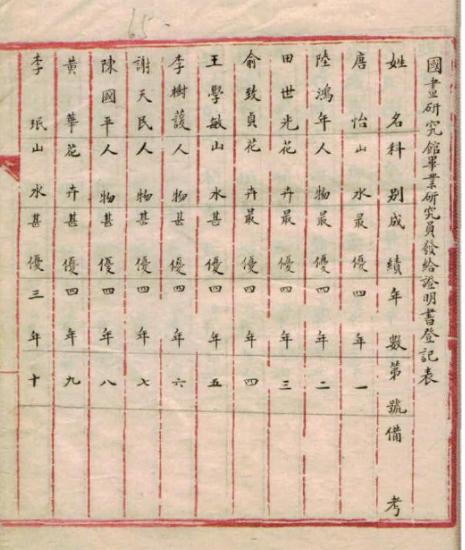 65
國畫研究館畢業研究員發給證明書登記表
姓名科別成績年數第號備考
唐怡山水最優四年一
陸鴻年人物最優四年二
田世光花卉最優四年三
俞致貞花卉最優四年四
王學敏山水甚優四年五
李樹萱人物甚優四年六
謝天民人物甚優四年七
陳國平人物甚優四年八
黃華花卉甚優四年九
李珉山水甚優三年十